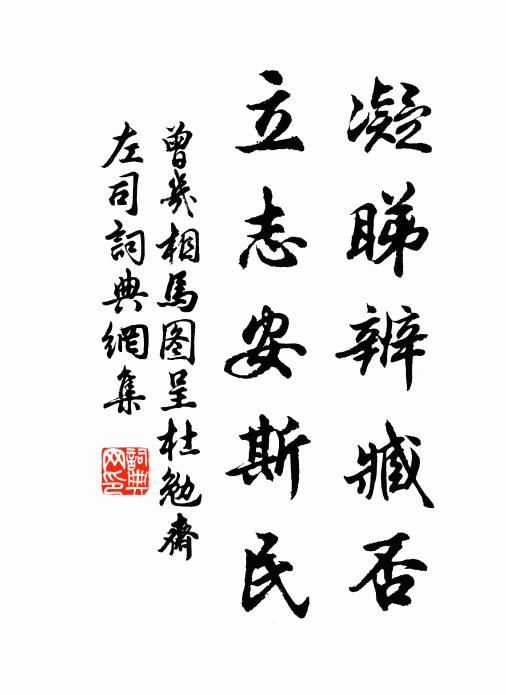 凝睇辨臧否
立志安斯民
曾幾相馬图呈杜勉齋
左司詞典網集
詞典網印